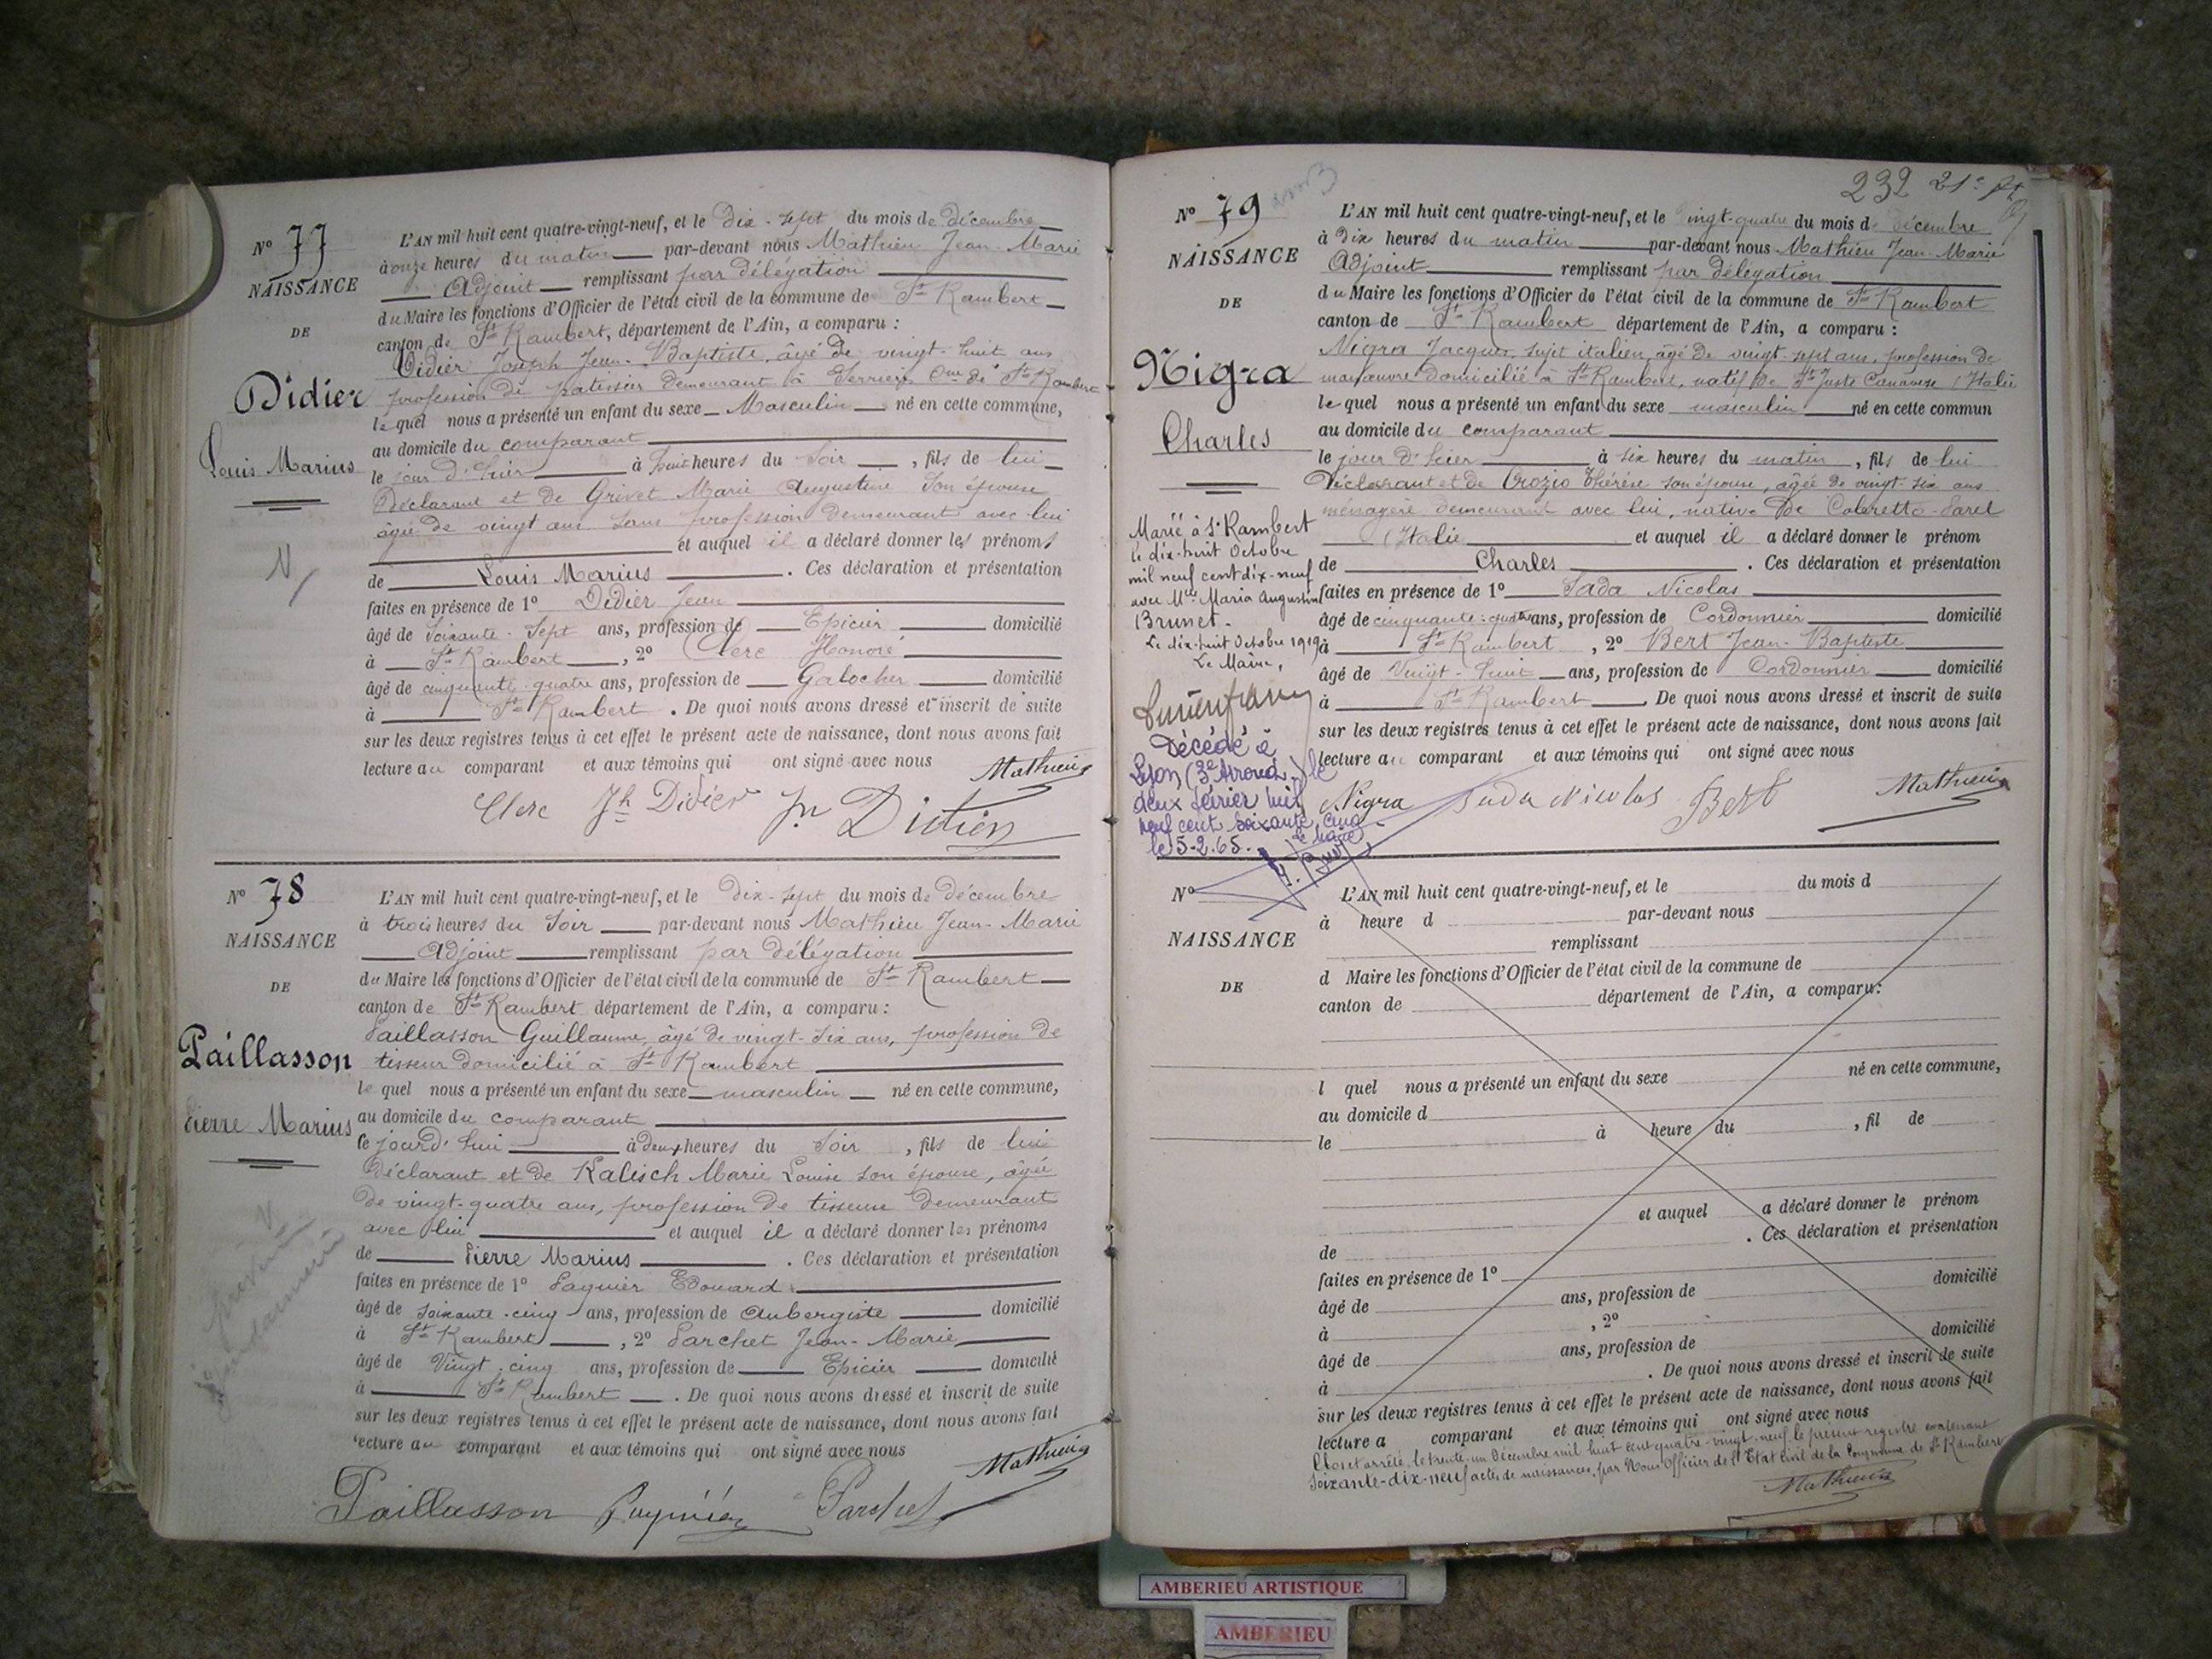 N° 77
NAISSANCE
DE
Didier
Louis Marius
L'AN mil huit cent quatre-vingt-neuf, et le Dix-sept du mois de Décembre
à onze heures du matin par-devant nous Mathieu Jean-Marie
Adjoint remplissant par délégation
du Maire les fonctions d'Officier de l'état civil de la commune de St Rambert
canton de St Rambert, département de l'Ain, a comparu :
Didier Joseph Jean-Baptiste, âgé de vingt-huit ans
profession de patissier demeurant à Serrières Cne de St Rambert
lequel nous a présenté un enfant du sexe Masculin né en cette commune,
au domicile du comparant
le jour d'hier à huit heures du soir, fils de lui
Déclarant et de Grivet Marie Augustine son épouse
âgée de vingt ans sans profession demeurant avec lui
et auquel il a déclaré donner les prénoms
de Louis Marius. Ces déclaration et présentation
faites en présence de 1° Didier Jean
âgé de soixante-sept ans, profession de Epicier domicilié
à St Rambert, 2° Clerc Honoré
âgé de cinquante-quatre ans, profession de Galocher domicilié
à St Rambert. De quoi nous avons dressé et inscrit de suite
sur les deux registres tenus à cet effet le présent acte de naissance, dont nous avons fait
lecture au comparant et aux témoins qui ont signé avec nous
Mathieu
Clerc Jh Didier Jn Didier
N° 78
NAISSANCE
DE
Paillasson
Pierre Marius
L'AN mil huit cent quatre-vingt-neuf, et le dix-sept du mois de Décembre
à trois heures du soir par-devant nous Mathieu Jean-Marie
Adjoint remplissant par délégation
du Maire les fonctions d'Officier de l'état civil de la commune de St Rambert
canton de St Rambert département de l'Ain, a comparu :
Paillasson Guillaume, âgé de vingt-six ans, profession de
tisseur domicilié à St Rambert
lequel nous a présenté un enfant du sexe masculin né en cette commune,
au domicile du comparant
le jourd'hui à deux heures du soir, fils de lui
Déclarant et de Kalisch Marie Louise son épouse, âgée
de vingt-quatre ans, profession de tisseuse demeurant
avec lui et auquel il a déclaré donner les prénoms
de Pierre Marius. Ces déclaration et présentation
faites en présence de 1° Edouard
âgé de soixante-cinq ans, profession de aubergiste domicilié
à St Rambert, 2° Parchet Jean-Marie
âgé de vingt-cinq ans, profession de Epicier domicilié
à St Rambert. De quoi nous avons dressé et inscrit de suite
sur les deux registres tenus à cet effet le présent acte de naissance, dont nous avons fait
lecture au comparant et aux témoins qui ont signé avec nous
Mathieu
Paillasson Parchet
232
N° 79
NAISSANCE
DE
Nigra
Charles
Marié à St Rambert
le dix-huit Octobre
mil neuf cent dix-neuf
avec Mlle Maria Augustine
Brunet.
Le dix-huit Octobre 1919
Le Maire,
Décédé à
Lyon (3e Arrond.) le
deux février mil
neuf cent soixante cinq
le 5-2-65.
L'AN mil huit cent quatre-vingt-neuf, et le vingt-quatre du mois de décembre
à Dix heures du matin par-devant nous Mathieu Jean-Marie
Adjoint remplissant par délégation
du Maire les fonctions d'Officier de l'état civil de la commune de St Rambert
canton de St Rambert département de l'Ain, a comparu :
Nigra Jacques, sujet italien, âgé de vingt-sept ans, profession de
manœuvre domicilié à St Rambert, natif de St Juste Canavese (Italie
lequel nous a présenté un enfant du sexe masculin né en cette commun
au domicile du comparant
le jour d'hier à six heures du matin, fils de lui
Déclarant et de Orozio Thérèse son épouse, âgée de vingt-six ans
ménagère demeurant avec lui, native de Coleretto-Parel
(Italie et auquel il a déclaré donner le prénom
de Charles. Ces déclaration et présentation
faites en présence de 1° Sada Nicolas
âgé de cinquante-quatre ans, profession de Cordonnier domicilié
à St Rambert, 2° Bert Jean-Baptiste
âgé de Vingt-huit ans, profession de Cordonnier domicilié
à St Rambert. De quoi nous avons dressé et inscrit de suite
sur les deux registres tenus à cet effet le présent acte de naissance, dont nous avons fait
lecture au comparant et aux témoins qui ont signé avec nous
Nigra Sada Nicolas Bert Mathieu
N°
NAISSANCE
DE
L'AN mil huit cent quatre-vingt-neuf, et le du mois d
à heure d par-devant nous
remplissant
d Maire les fonctions d'Officier de l'état civil de la commune de
canton de département de l'Ain, a comparu :
l quel nous a présenté un enfant du sexe né en cette commune,
au domicile d
le à heure du , fil de
et auquel a déclaré donner le prénom
de . Ces déclaration et présentation
faites en présence de 1°
âgé de ans, profession de domicilié
à , 2°
âgé de ans, profession de domicilié
à . De quoi nous avons dressé et inscrit de suite
sur les deux registres tenus à cet effet le présent acte de naissance, dont nous avons fait
lecture a comparant et aux témoins qui ont signé avec nous
Clos et arrêté, le trente-un Décembre mil huit cent quatre-vingt-neuf le présent registre contenant
Soixante-dix-neuf actes de naissances, par Nous Officier de l'Etat Civil de la Commune de St Rambert
Mathieu
AMBERIEU ARTISTIQUE
AMBERIEU